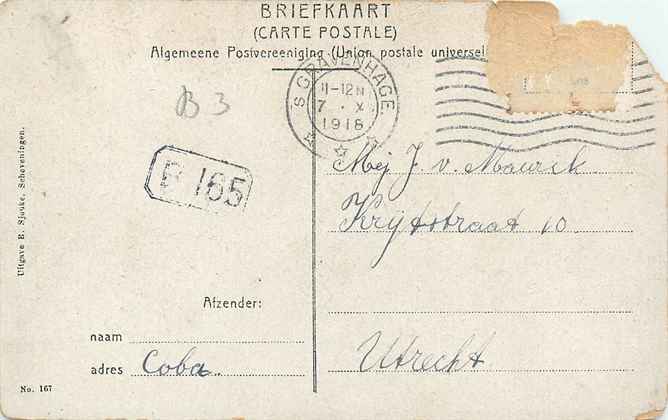 BRIEFKAART
(CARTE POSTALE)
Algemeene Postvereeniging (Union postale universel
'S GRAVENHAGE
11-12 N
7 . X
1918
B 3
B 165
Mej J. v. Maurik
Krijtstraat 10.
Utrecht
Afzender:
naam
adres Coba.
Uitgave E. Sjouke, Scheveningen.
No. 167